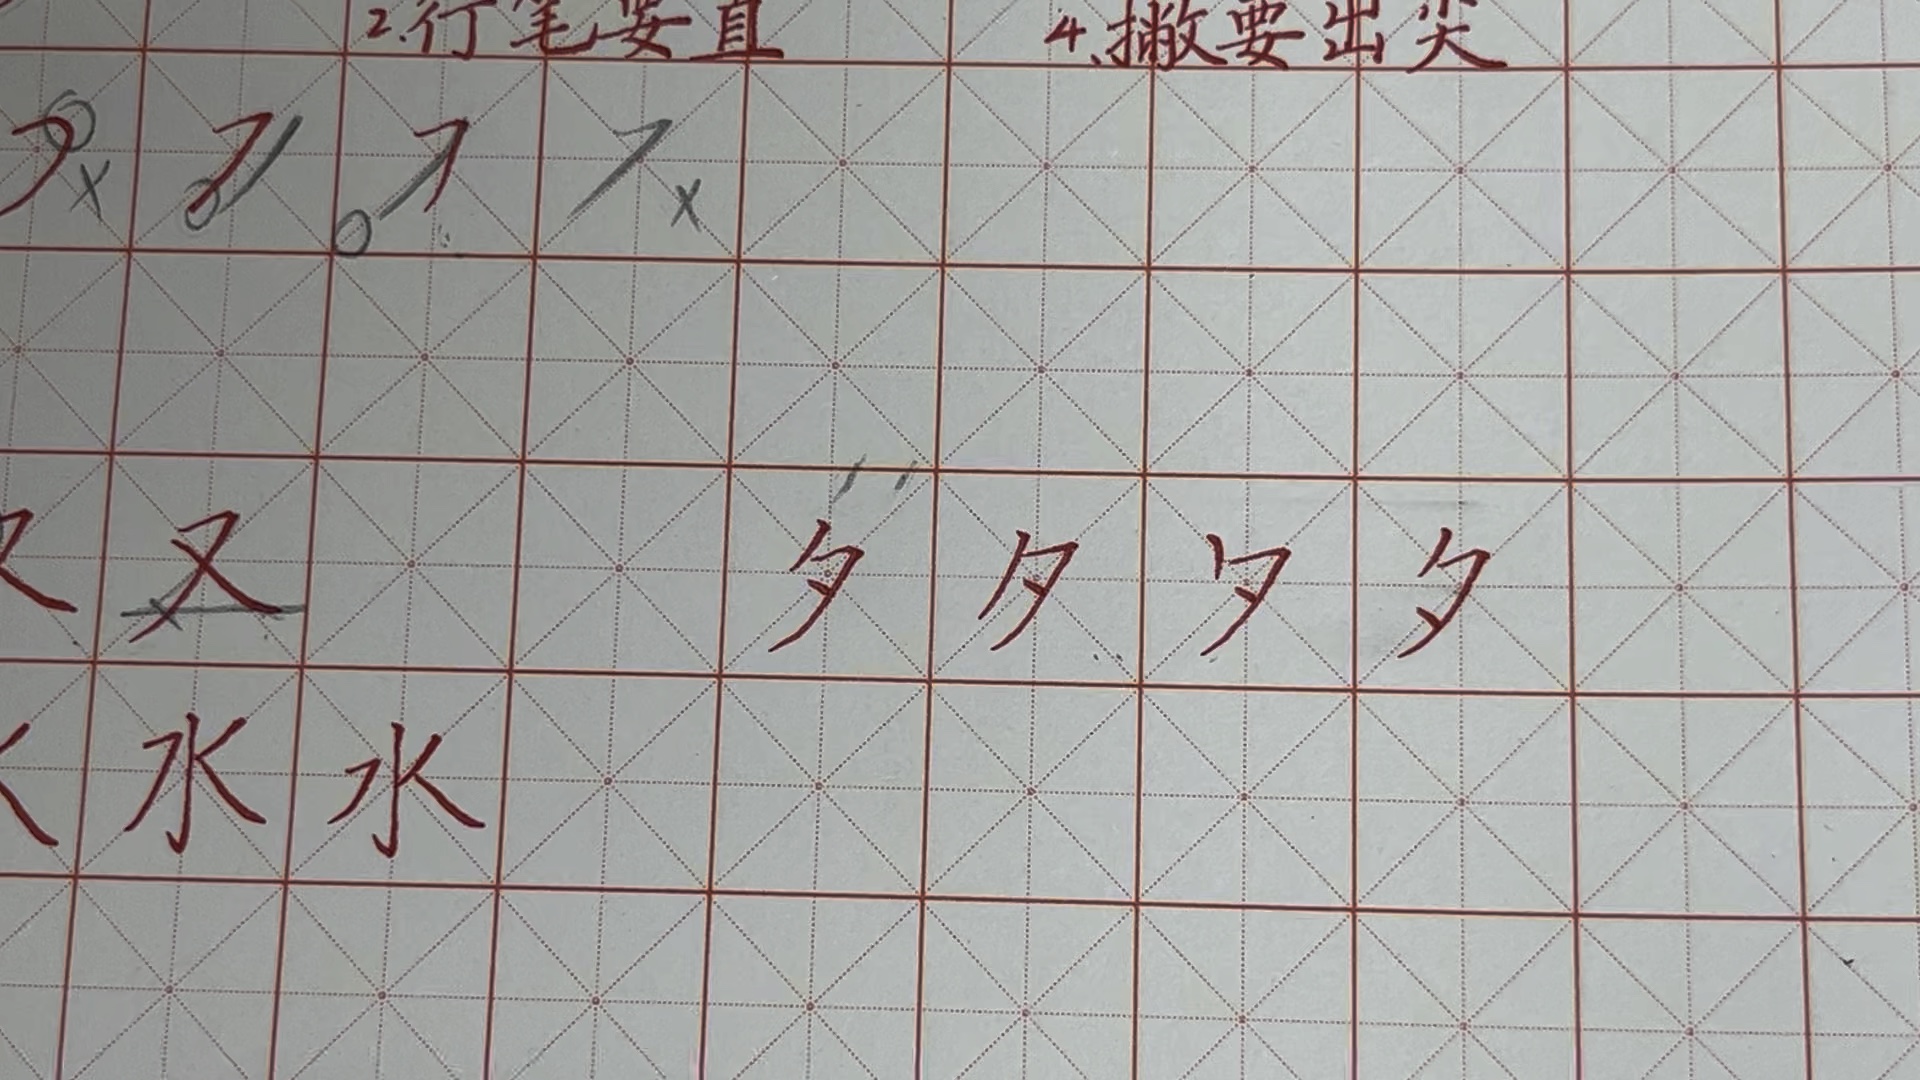 2.行笔要直 4.撇要出尖
又 夕 夕 夕 夕
水 水